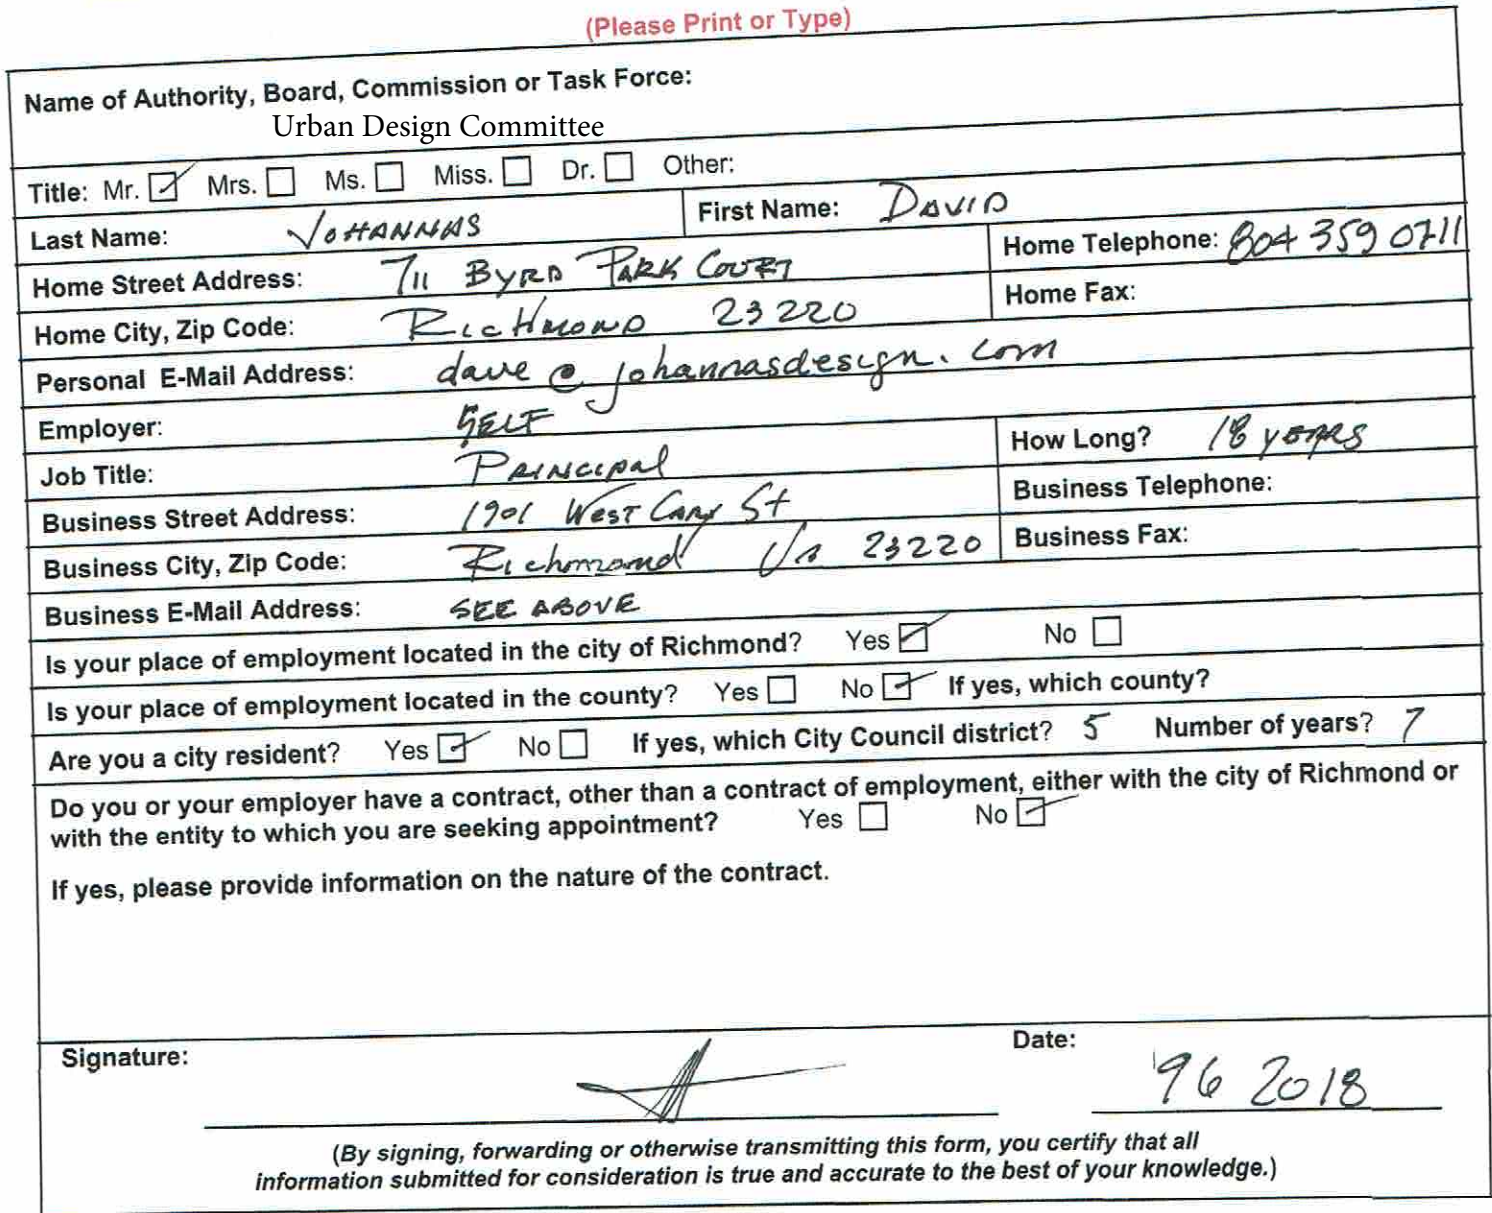 (Please Print or Type)
Name of Authority, Board, Commission or Task Force:
Urban Design Committee
Title: Mr. ☑ Mrs. ☐ Ms. ☐ Miss. ☐ Dr. ☐ Other:
Last Name: JOHANNAS First Name: DAVID
Home Street Address: 711 BYRD PARK COURT Home Telephone: 804 359 0711
Home City, Zip Code: RICHMOND 23220 Home Fax:
Personal E-Mail Address: dave@johannasdesign.com
Employer: SELF
Job Title: PRINCIPAL How Long? 18 YEARS
Business Street Address: 1901 WEST CARY St Business Telephone:
Business City, Zip Code: Richmond Va 23220 Business Fax:
Business E-Mail Address: SEE ABOVE
Is your place of employment located in the city of Richmond? Yes ☑ No ☐
Is your place of employment located in the county? Yes ☐ No ☑ If yes, which county?
Are you a city resident? Yes ☑ No ☐ If yes, which City Council district? 5 Number of years? 7
Do you or your employer have a contract, other than a contract of employment, either with the city of Richmond or
with the entity to which you are seeking appointment? Yes ☐ No ☑
If yes, please provide information on the nature of the contract.
Signature: Date: 96 2018
(By signing, forwarding or otherwise transmitting this form, you certify that all
information submitted for consideration is true and accurate to the best of your knowledge.)